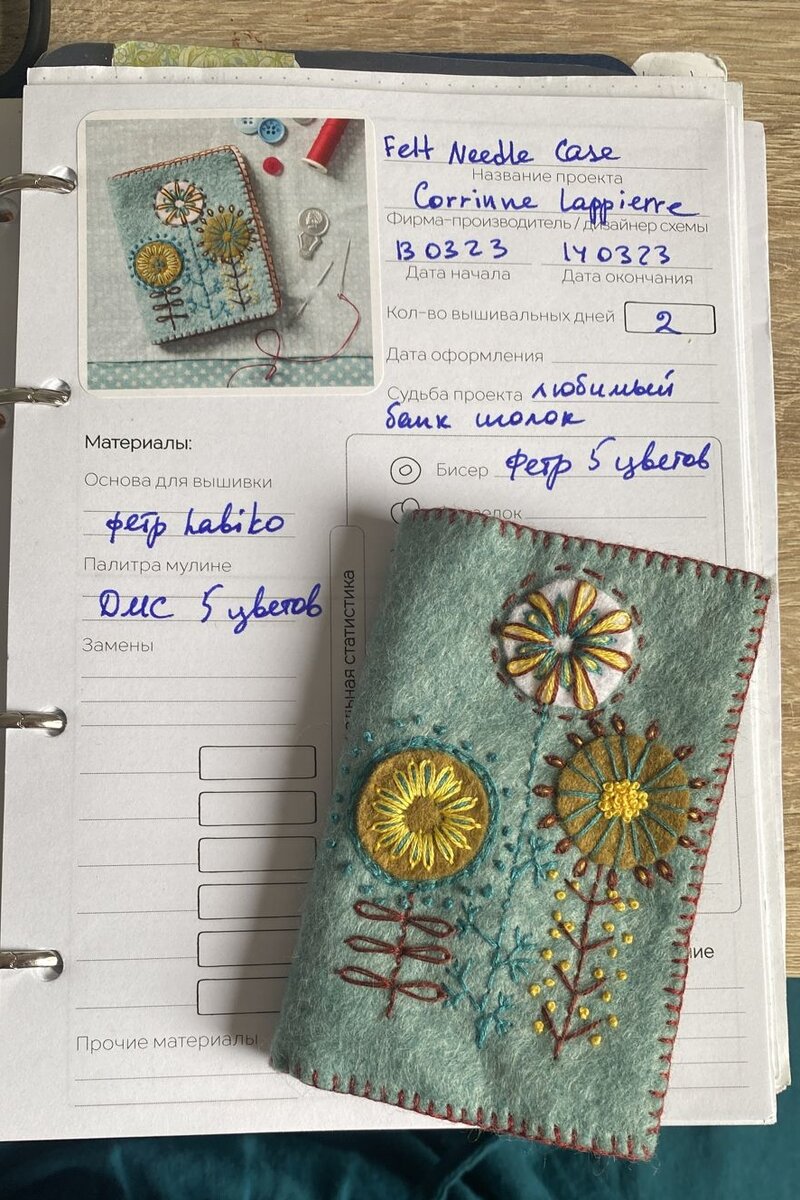 Felt Needle Case
Название проекта
Corrinne Lappierre
Фирма-производитель / дизайнер схемы
130323 140323
Дата начала Дата окончания
Кол-во вышивальных дней 2
Дата оформления
Судьба проекта любимый
банк иголок
Материалы:
Основа для вышивки
фетр Labiko
Палитра мулине
DMC 5 цветов
Замены
Прочие материалы
Бисер фетр 5 цветов